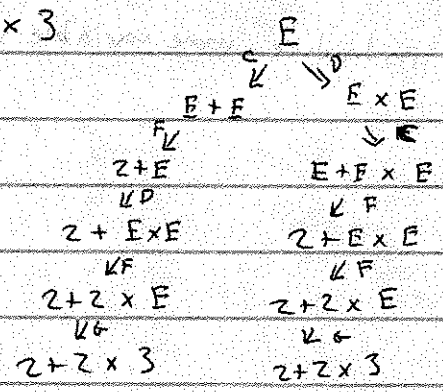 x 3 E
C D
E + E E x E
F C
2 + E E + E x E
D F
2 + E x E 2 + E x E
F F
2 + 2 x E 2 + 2 x E
G G
2 + 2 x 3 2 + 2 x 3